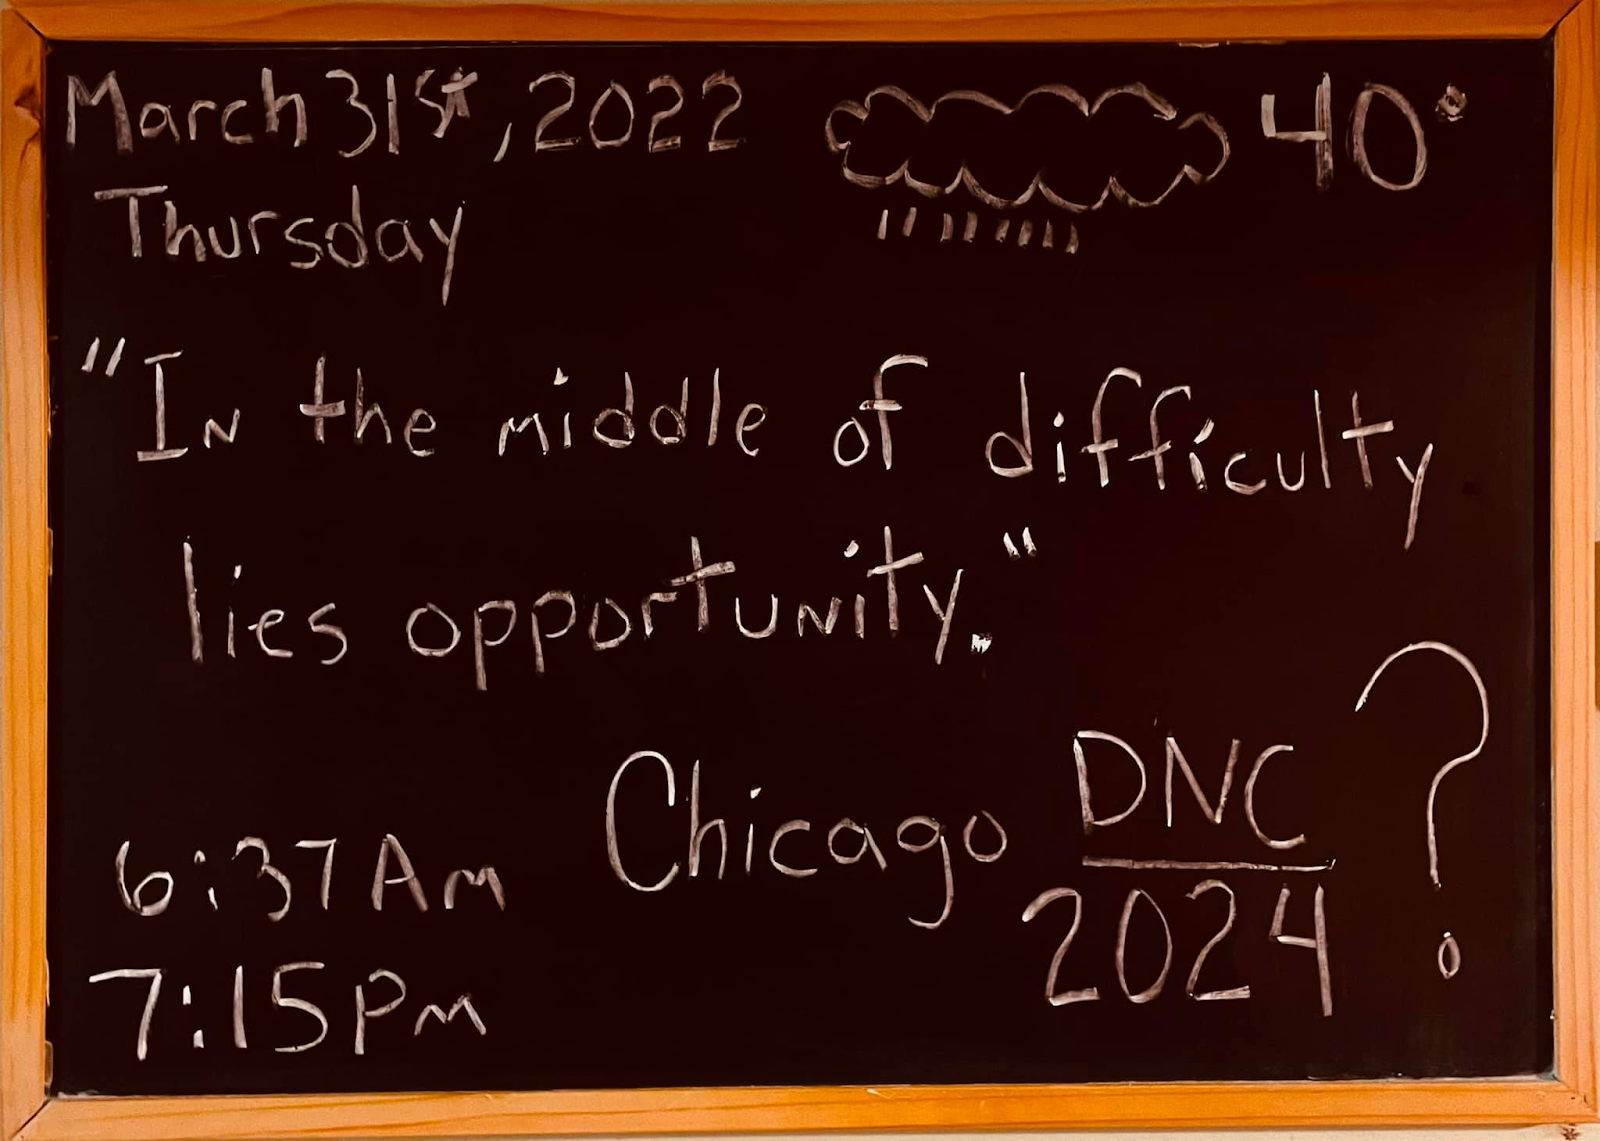 March 31st, 2022 40°
Thursday
"In the middle of difficulty
lies opportunity."
6:37 Am
7:15 Pm
Chicago DNC ?
2024